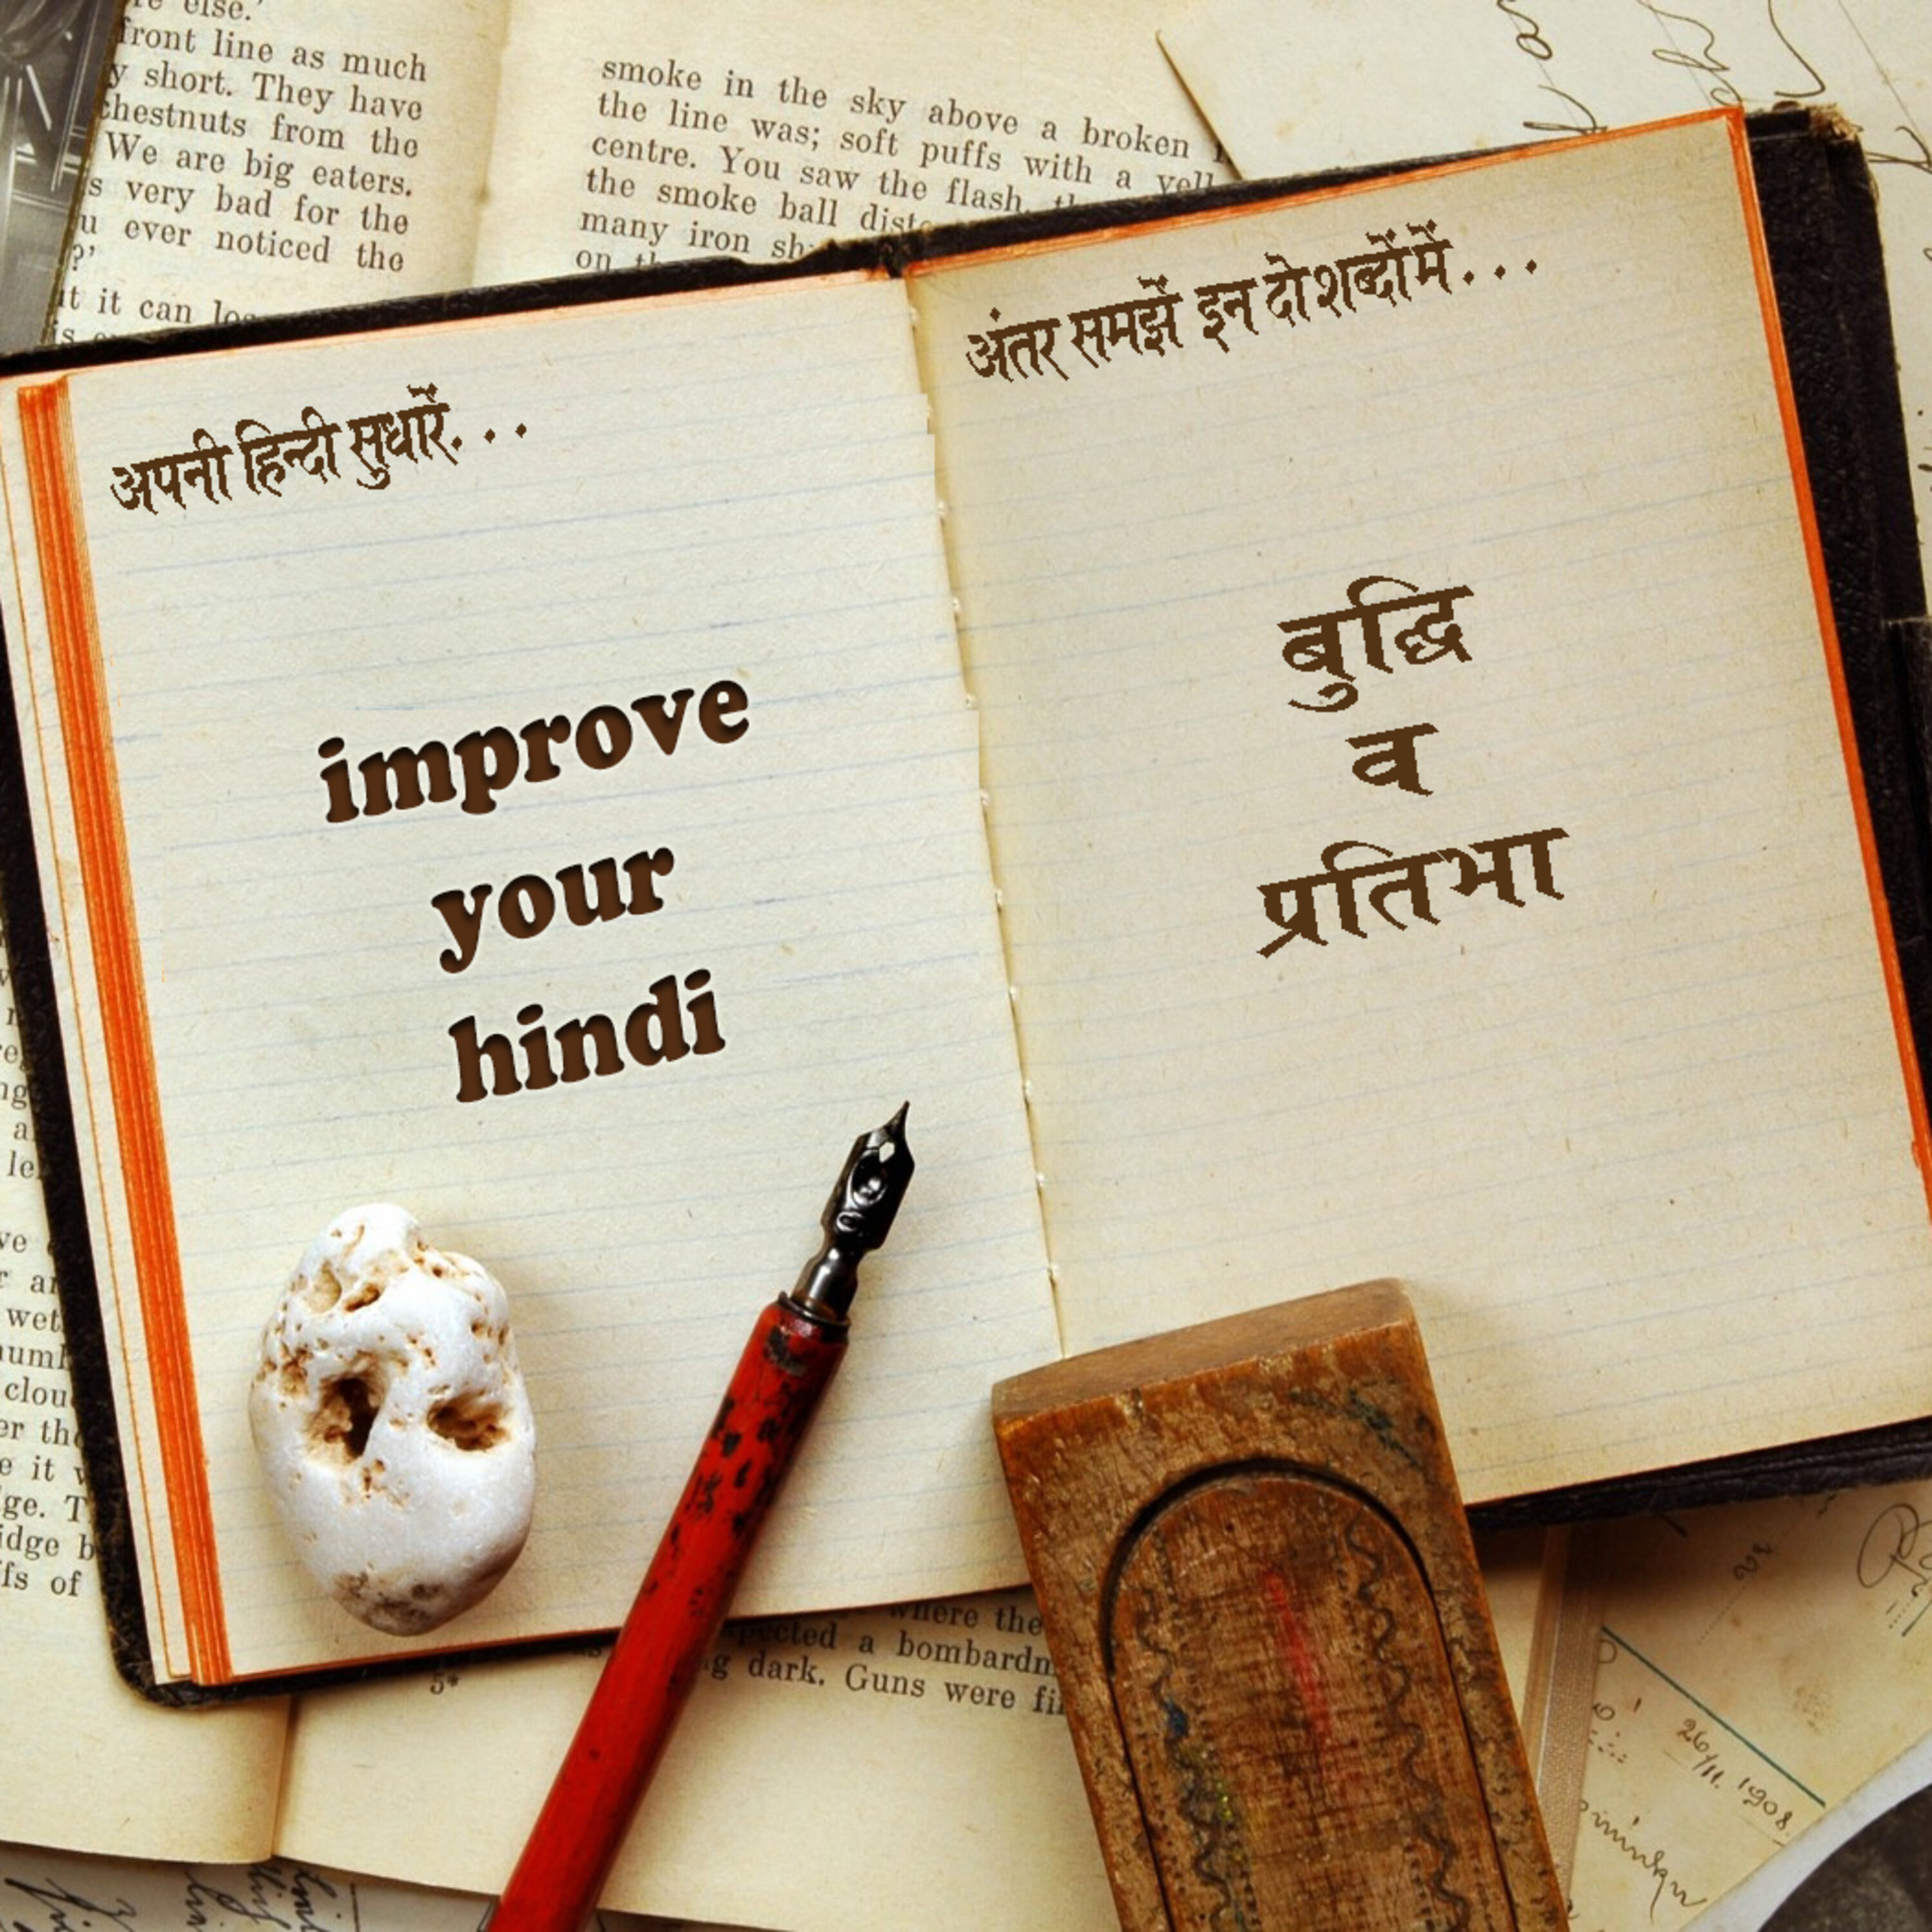 re else.'
front line as much
y short. They have
chestnuts from the
We are big eaters.
s very bad for the
u ever noticed the
?'
it it can
smoke in the sky above a broken
the line was; soft puffs with a
centre. You saw the flash
the smoke ball
many iron
on
अपनी हिन्दी सुधारें...
improve
your
hindi
अंतर समझें इन दो शब्दों में...
बुद्धि
व
प्रतिभा
wet
clou
it
of
where the
a bombardm
dark. Guns were
5*
26/11. 1908.